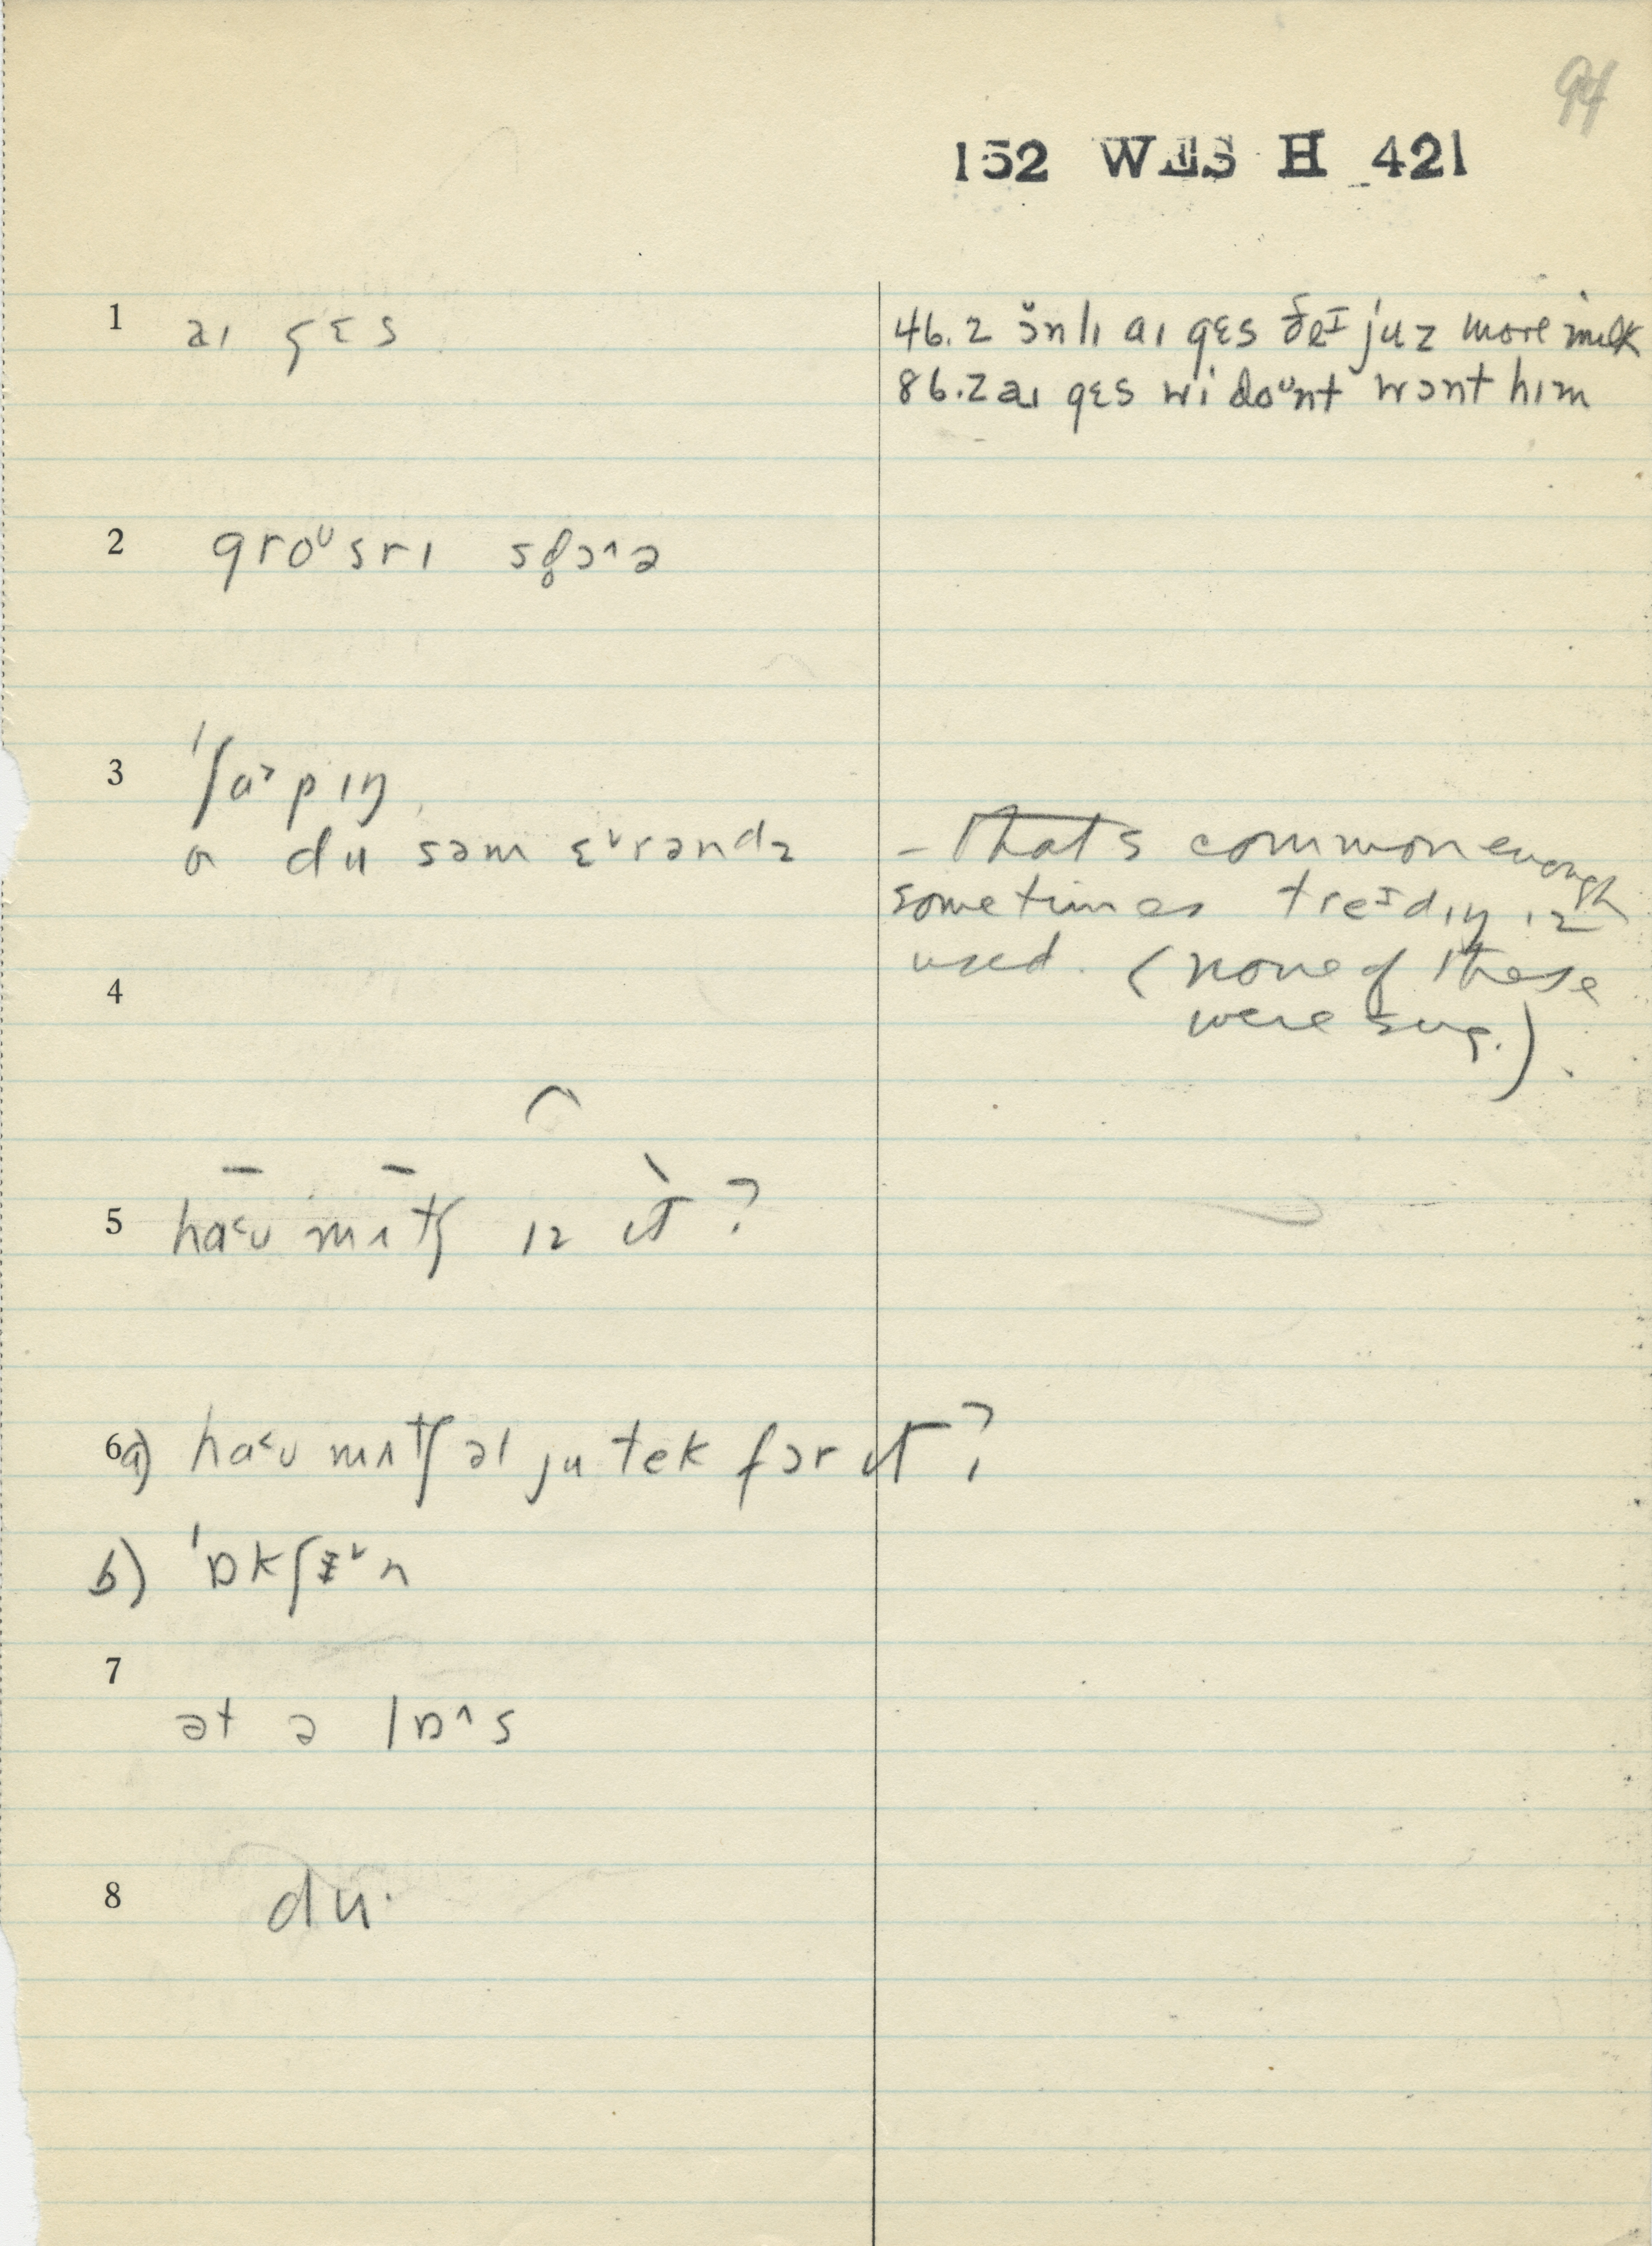 94
152 WES H 421
1 aɪ gɛs
46.2 ɔ̆nlɪ aɪ gɛs ðeᶦ juz more milk
86.2 aɪ gɛs wi doᶷnt wɔnt hɪm
2 groᶷsrɪ stɔ˄ə
3 ˈʃɑ˃pɪŋ
ɑ du səm ɛ˅rəndz
– That's common enough
sometimes treᶦdɪŋ ɪz
used. (none of these
were sug.)
4
5 ha˂ʊ mʌtʃ ɪz ɪt?
6a) ha˂ʊ mʌtʃ əl ju tek fər ɪt?
b) ˈɒkʃɪ˅n
7
ət ə lɒ˄s
8 du·